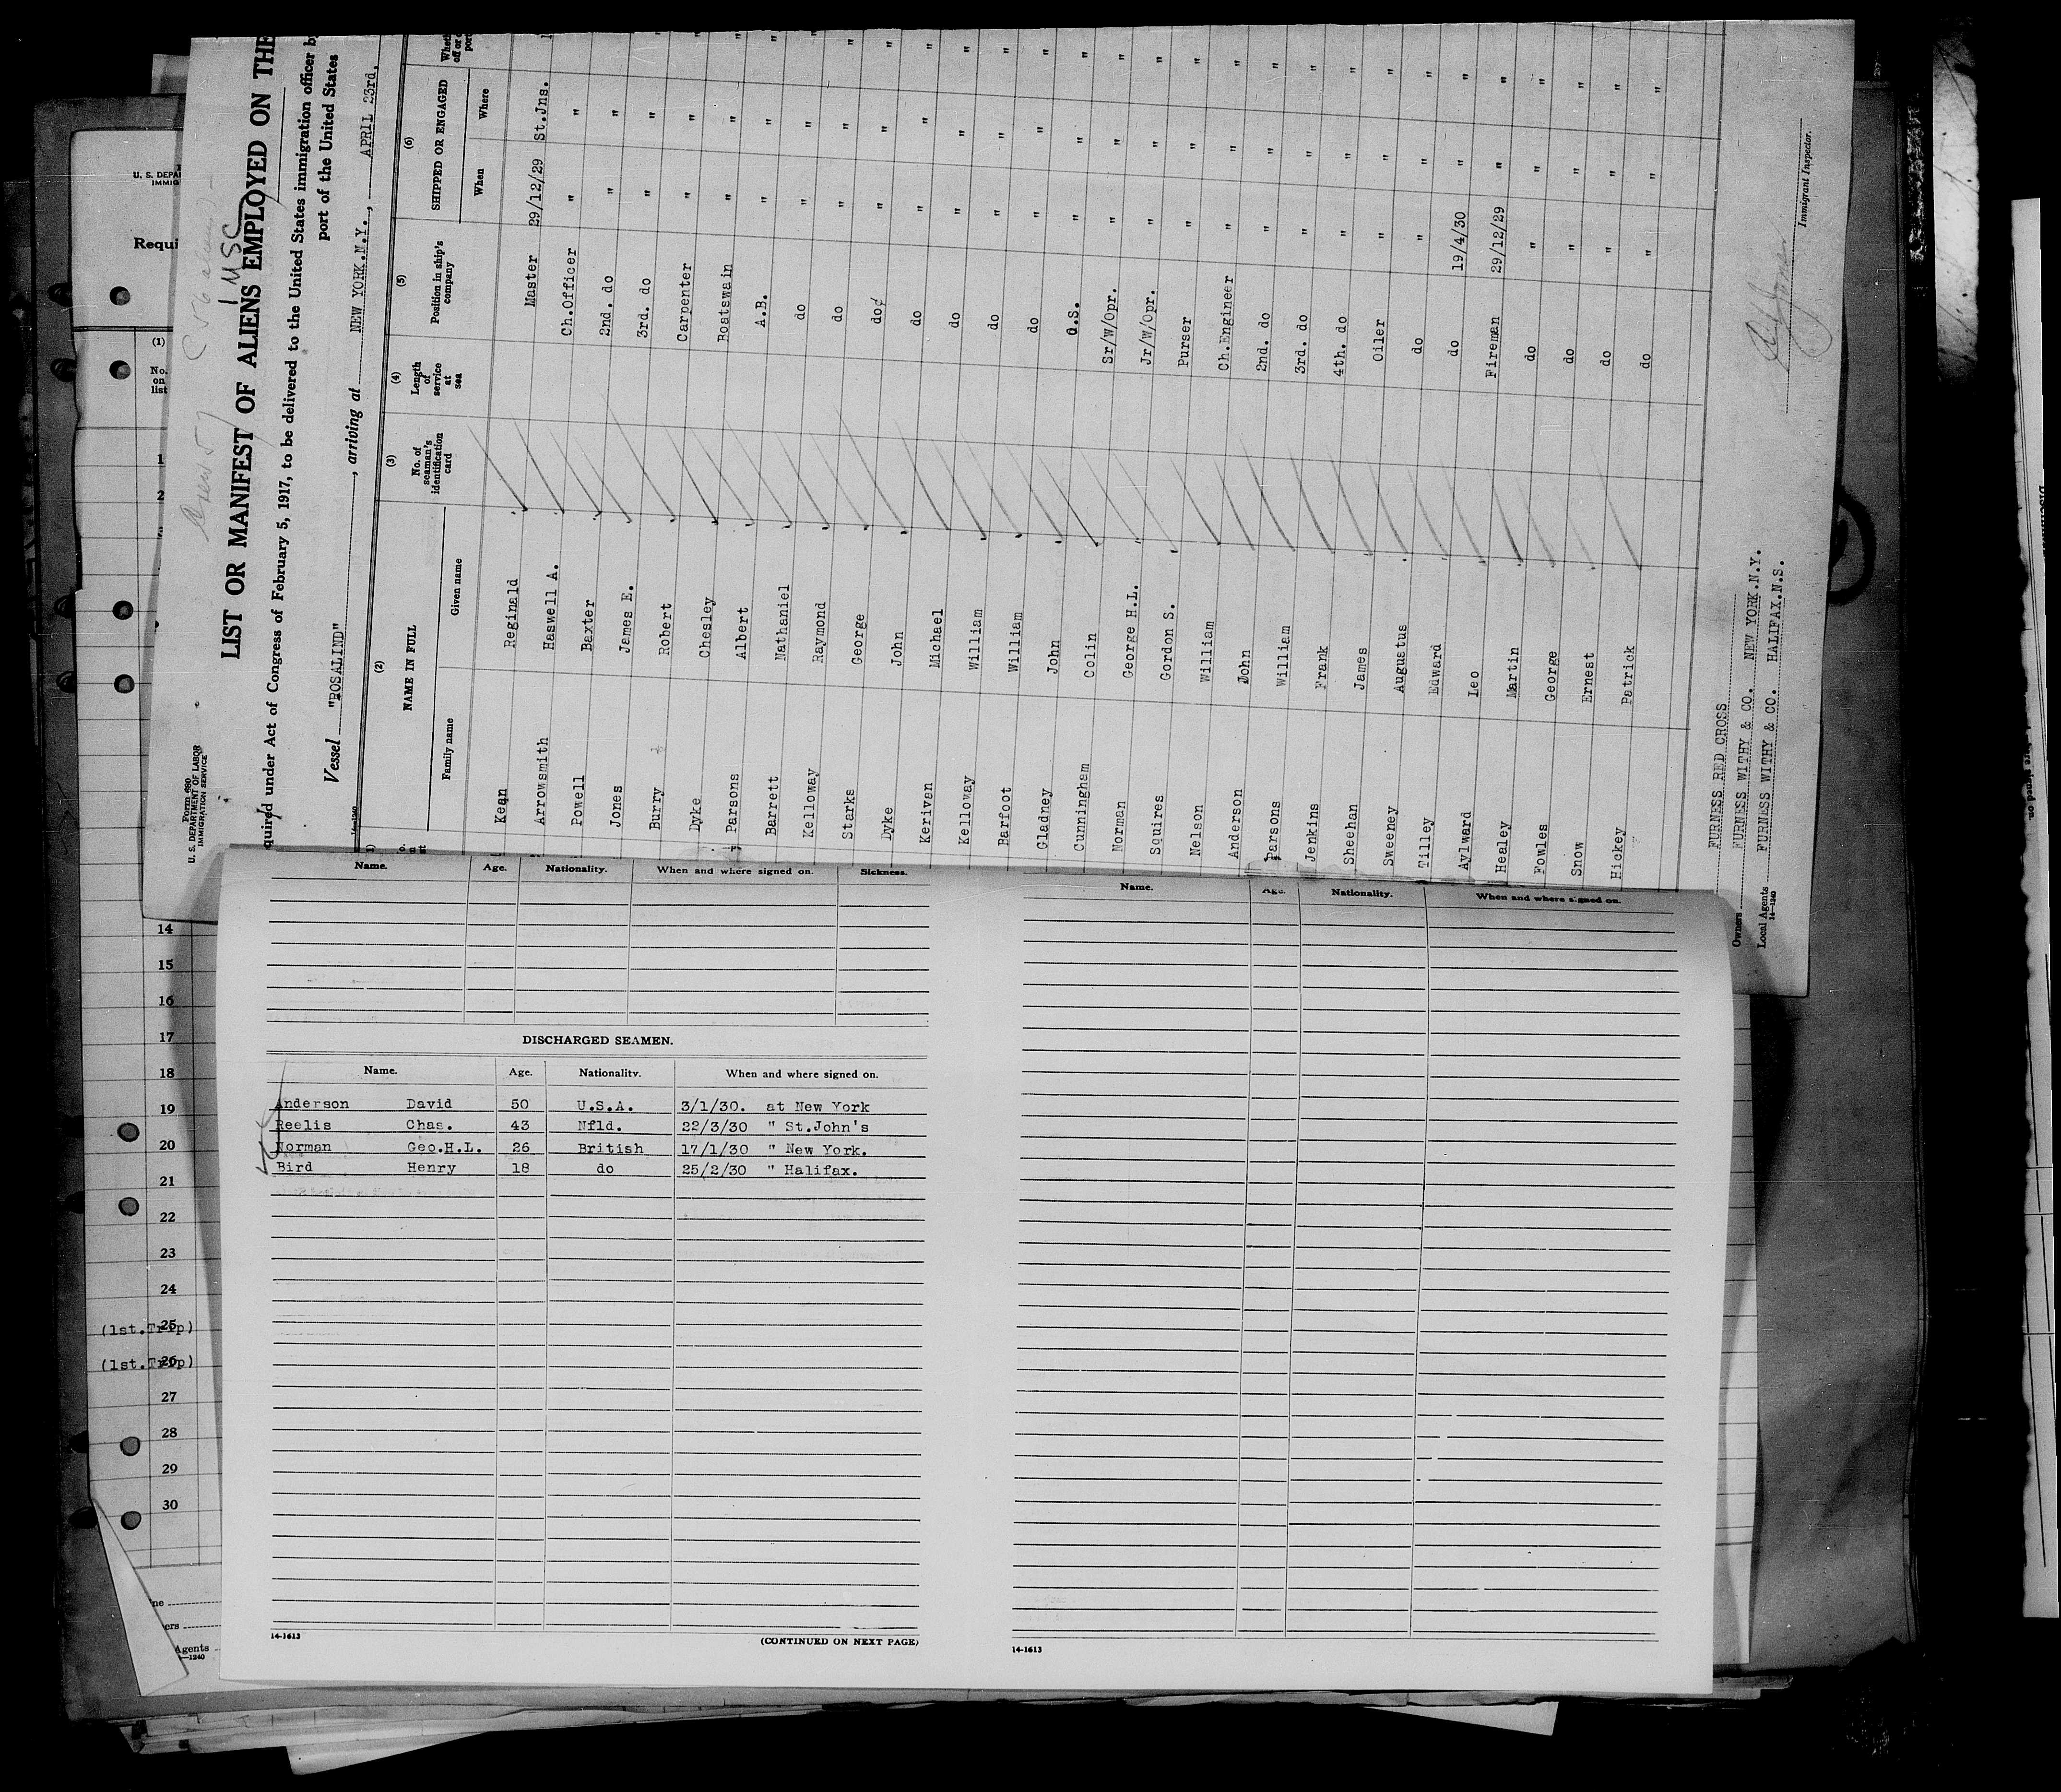 Form 680
U. S. DEPARTMENT OF LABOR
IMMIGRATION SERVICE
LIST OR MANIFEST OF ALIENS EMPLOYED ON THE
1 MSC
quired under Act of Congress of February 5, 1917, to be delivered to the United States immigration officer by
port of the United States
Vessel "ROSALIND", arriving at NEW YORK.N.Y., APRIL 23rd,
14-1240
(2) (3) (4) (5) (6)
NAME IN FULL
No. of seaman's identification card
Length of service at sea
Position in ship's company
SHIPPED OR ENGAGED
Family name Given name When Where
Kean Reginald Master 29/12/29 St.Jns.
Arrowsmith Haswell A. Ch.Officer " "
Powell Baxter 2nd. do " "
Jones James E. 3rd. do " "
Burry Robert Carpenter " "
Dyke Chesley Boatswain " "
Parsons Albert A.B. " "
Barrett Nathaniel do " "
Kelloway Raymond do " "
Starks George do " "
Dyke John do " "
Kerivan Michael do " "
Kelloway William do " "
Barfoot William do " "
Gladney John O.S. " "
Cunningham Colin Sr/W/Opr. " "
Norman George H.L. Jr/W/Opr. " "
Squires Gordon S. Purser " "
Nelson William Ch.Engineer " "
Anderson John 2nd. do " "
Parsons William 3rd. do " "
Jenkins Frank 4th. do " "
Sheehan James Oiler " "
Sweeney Augustus do " "
Tilley Edward do 19/4/30 "
Aylward Leo Fireman 29/12/29 "
Healey Martin do " "
Fowles George do " "
Snow Ernest do " "
Hickey Patrick do " "
FURNESS RED CROSS
Owners FURNESS WITHY & CO. NEW YORK.N.Y.
Local Agents FURNESS WITHY & CO. HALIFAX.N.S.
14-1240
Immigrant Inspector.
U. S. DEPA
IMMIG
Requi
(1)
No. on list
1
2
14
15
16
17
18
19
20
21
22
23
24
(1st.Trip) 25
(1st.Trip) 26
27
28
29
30
ers
Agents
-1240
Name. Age. Nationality. When and where signed on. Sickness.
DISCHARGED SEAMEN.
Name. Age. Nationality. When and where signed on.
Anderson David 50 U.S.A. 3/1/30. at New York
Reelis Chas. 43 Nfld. 22/3/30 " St.John's
Norman Geo.H.L. 26 British 17/1/30 " New York.
Bird Henry 18 do 25/2/30 " Halifax.
14-1613
(CONTINUED ON NEXT PAGE)
Name. Age. Nationality. When and where signed on.
14-1613